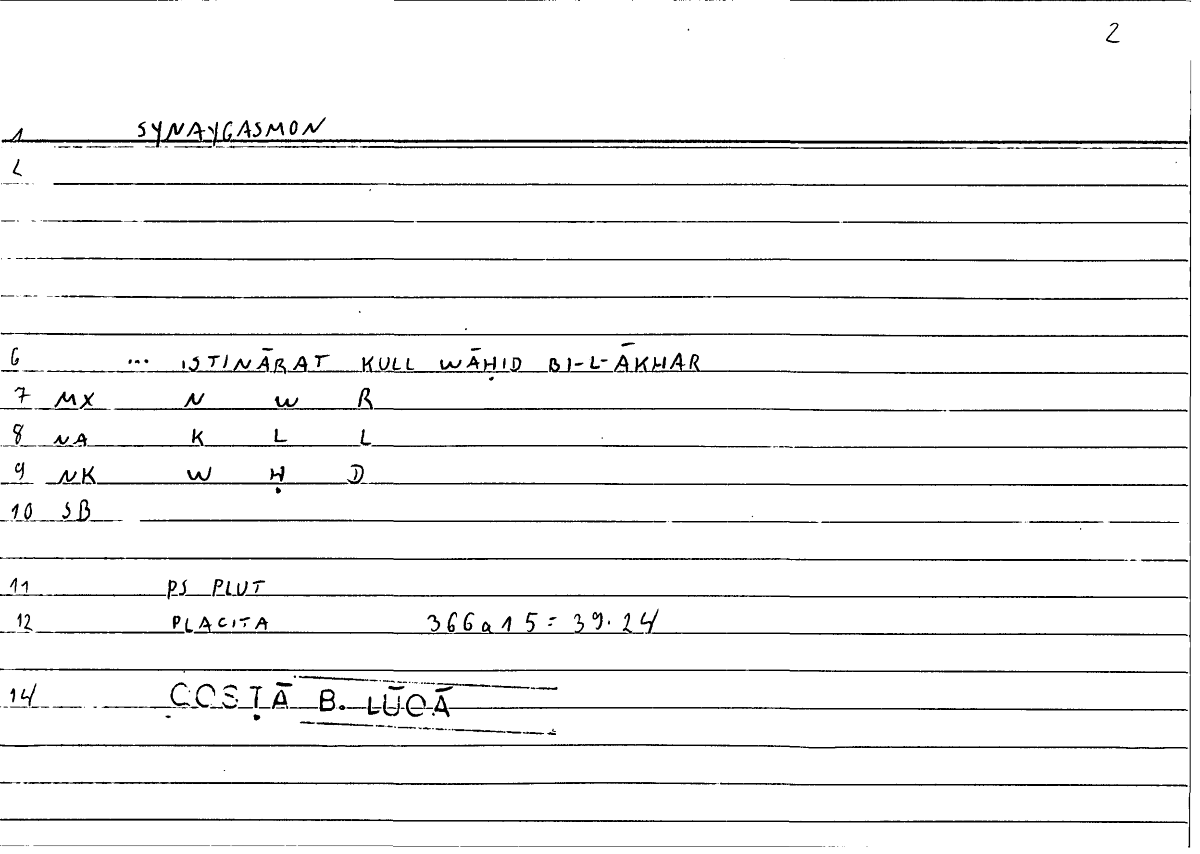 2
1 SYNAYGASMON
2
6 ... ISTINĀRAT KULL WĀḤID BI-L-ĀKHAR
7 MX N W R
8 NA K L L
9 NK W Ḥ D
10 SB
11 PS PLUT
12 PLACITA 366a15 = 39.24
14 QOSṬĀ B. LŪQĀ